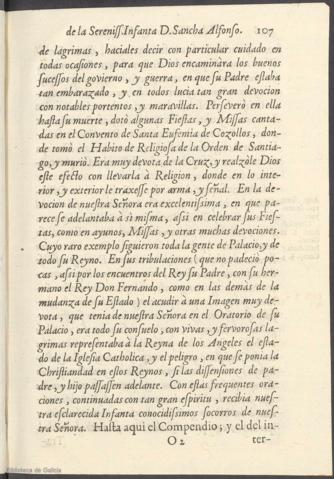 de la Sereniss. Infanta D. Sancha Alfonso. 107
de lagrimas, haciales decir con particular cuidado en
todas ocasiones, para que Dios encaminàra los buenos
sucessos del govierno, y guerra, en que su Padre estaba
tan embarazado, y en todos lucia tan gran devocion
con notables portentos, y maravillas. Perseverò en ella
hasta su muerte, dotò algunas Fiestas, y Missas canta-
das en el Convento de Santa Eufemia de Cozollos, don-
de tomò el Habito de Religiosa de la Orden de Santia-
go, y muriò. Era muy devota de la Cruz, y realzòle Dios
este efecto con llevarla à Religion, donde en lo inte-
rior, y exterior le traxesse por arma, y señal. En la de-
vocion de nuestra Señora era excelentissima, en que pa-
rece se adelantaba à sì misma, assi en celebrar sus Fies-
tas, como en ayunos, Missas, y otras muchas devociones.
Cuyo raro exemplo siguieron toda la gente de Palacio, y de
todo su Reyno. En sus tribulaciones (que no padeciò po-
cas, assi por los encuentros del Rey su Padre, con su her-
mano el Rey Don Fernando, como en las demàs de la
mudanza de su Estado) el acudir à una Imagen muy de-
vota, que tenia de nuestra Señora en el Oratorio de su
Palacio, era todo su consuelo, con vivas, y fervorosas la-
grimas representaba à la Reyna de los Angeles el esta-
do de la Iglesia Catholica, y el peligro, en que se ponia la
Christiandad en estos Reynos, si las dissensiones de pa-
dre, y hijo passassen adelante. Con estas frequentes ora-
ciones, continuadas con tan gran espiritu, recibia nues-
tra esclarecida Infanta conocidissimos socorros de nues-
tra Señora. Hasta aqui el Compendio; y el del in-
O 2 ter-
Biblioteca de Galicia